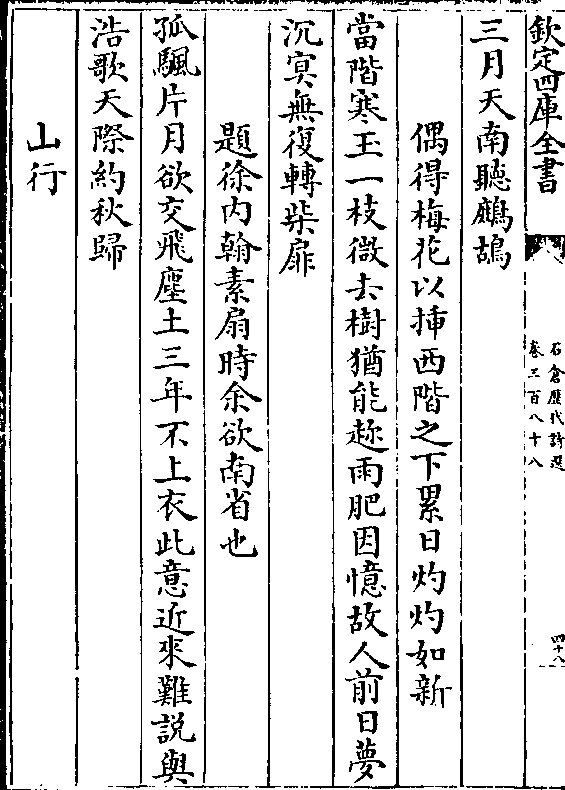 欽定四庫全書
石倉歷代詩選
卷三百八十八
四十八
三月天南聽鷓鴣
偶得梅花以揷西階之下累日灼灼如新
當階寒玉一枝微去樹猶能趂雨肥因憶故人前日夢
沉冥無復轉柴扉
題徐内翰素扇時余欲南省也
孤颿片月欲交飛塵土三年不上衣此意近來難説與
浩歌天際約秋歸
山行